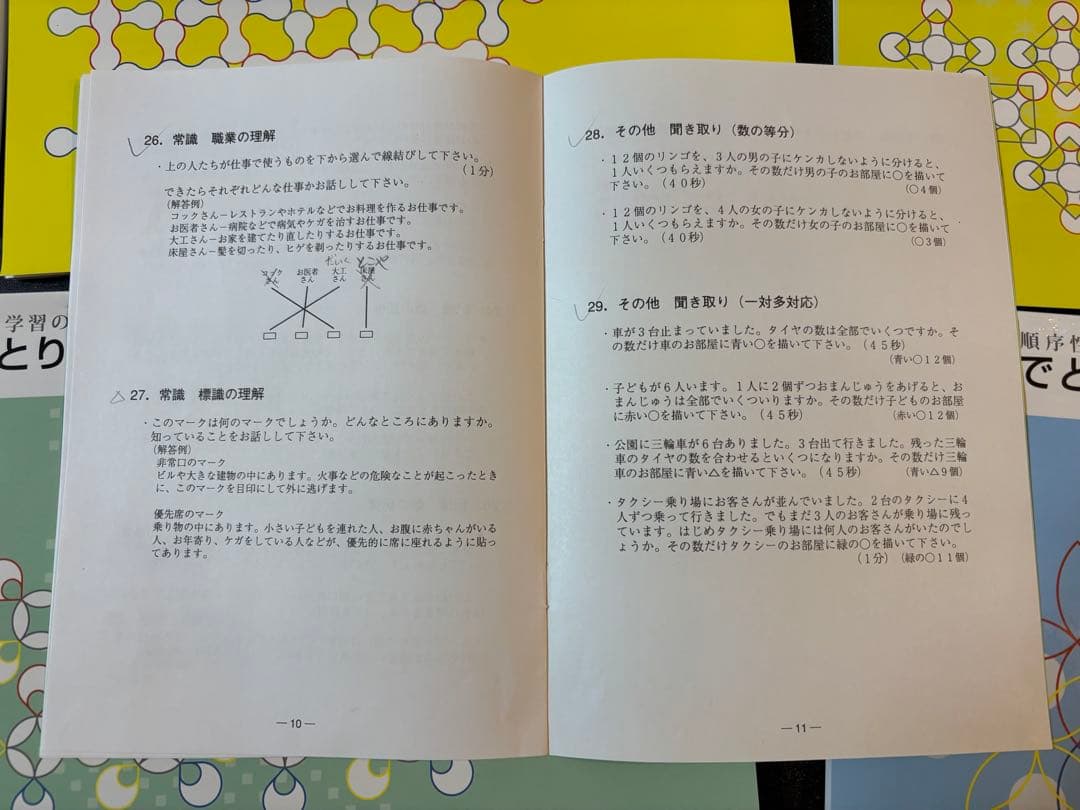 学習の
とり
順序性
でと
26．常識　職業の理解
・上の人たちが仕事で使うものを下から選んで線結びして下さい。
（１分）
できたらそれぞれどんな仕事かお話しして下さい。
（解答例）
コックさん－レストランやホテルなどでお料理を作るお仕事です。
お医者さん－病院などで病気やケガを治すお仕事です。
大工さん－お家を建てたり直したりするお仕事です。
床屋さん－髪を切ったり、ヒゲを剃ったりするお仕事です。
だいく とこや
コック お医者 大工 床屋
さん さん さん さん
27．常識　標識の理解
・このマークは何のマークでしょうか。どんなところにありますか。
知っていることをお話しして下さい。
（解答例）
非常口のマーク
ビルや大きな建物の中にあります。火事などの危険なことが起こったとき
に、このマークを目印にして外に逃げます。
優先席のマーク
乗り物の中にあります。小さい子どもを連れた人、お腹に赤ちゃんがいる
人、お年寄り、ケガをしている人などが、優先的に席に座れるように貼っ
てあります。
―10―
28．その他　聞き取り（数の等分）
・１２個のリンゴを、３人の男の子にケンカしないように分けると、
１人いくつもらえますか。その数だけ男の子のお部屋に○を描いて
下さい。（４０秒）
（○４個）
・１２個のリンゴを、４人の女の子にケンカしないように分けると、
１人いくつもらえますか。その数だけ女の子のお部屋に○を描いて
下さい。（４０秒）
（○３個）
29．その他　聞き取り（一対多対応）
・車が３台止まっていました。タイヤの数は全部でいくつですか。そ
の数だけ車のお部屋に青い○を描いて下さい。（４５秒）
（青い○１２個）
・子どもが６人います。１人に２個ずつおまんじゅうをあげると、お
まんじゅうは全部でいくついりますか。その数だけ子どものお部屋
に赤い○を描いて下さい。（４５秒）
（赤い○１２個）
・公園に三輪車が６台ありました。３台出て行きました。残った三輪
車のタイヤの数を合わせるといくつになりますか。その数だけ三輪
車のお部屋に青い△を描いて下さい。（４５秒）
（青い△９個）
・タクシー乗り場にお客さんが並んでいました。２台のタクシーに４
人ずつ乗って行きました。でもまだ３人のお客さんが乗り場に残っ
ています。はじめタクシー乗り場には何人のお客さんがいたのでし
ょうか。その数だけタクシーのお部屋に緑の○を描いて下さい。
（１分）（緑の○１１個）
―11―